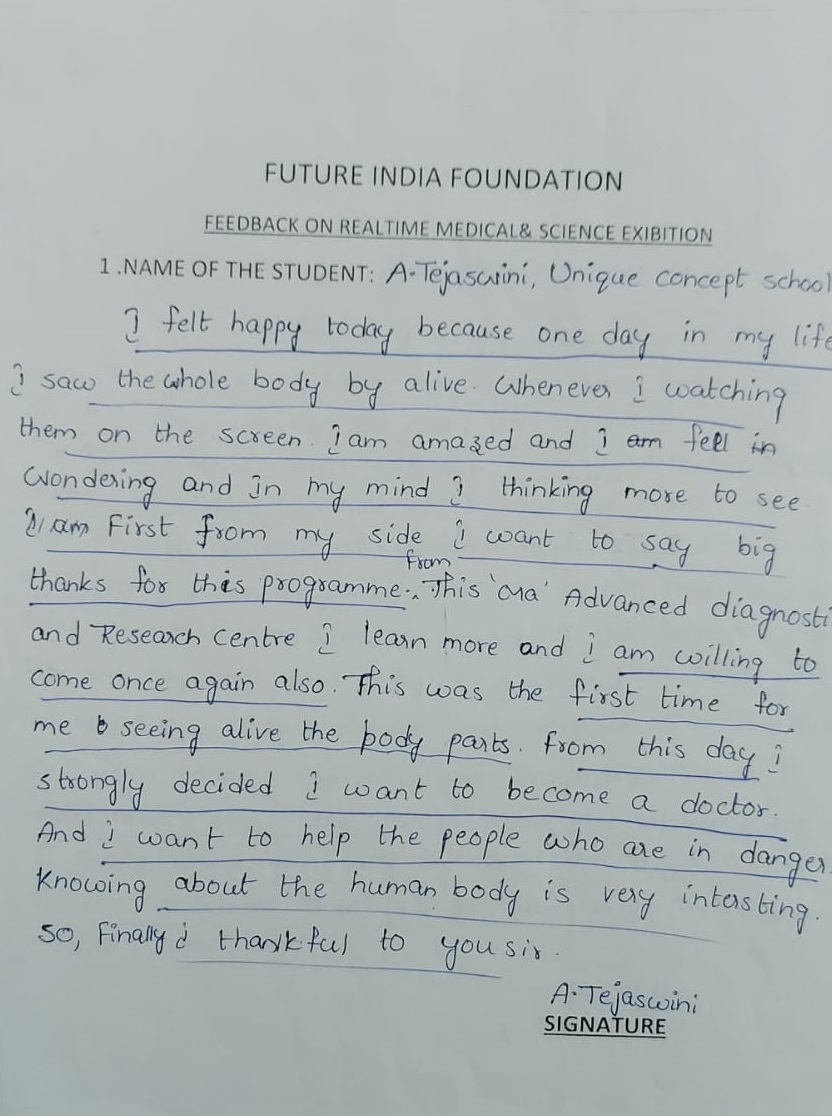 FUTURE INDIA FOUNDATION
FEEDBACK ON REALTIME MEDICAL& SCIENCE EXIBITION
1.NAME OF THE STUDENT: A.Tejaswini, Unique concept school
I felt happy today because one day in my life
I saw the whole body by alive. Whenever I watching
them on the screen. I am amazed and I am feel in
Wondering and In my mind I thinking more to see
I am First from my side I want to say big
from
thanks for this programme. This 'Ma' Advanced diagnosti
and Research Centre I learn more and I am willing to
come once again also. This was the first time for
me seeing alive the body parts. From this day I
strongly decided I want to become a doctor.
And I want to help the people who are in danger.
Knowing about the human body is very intersting.
So, Finally I thankful to you sir.
A.Tejaswini
SIGNATURE